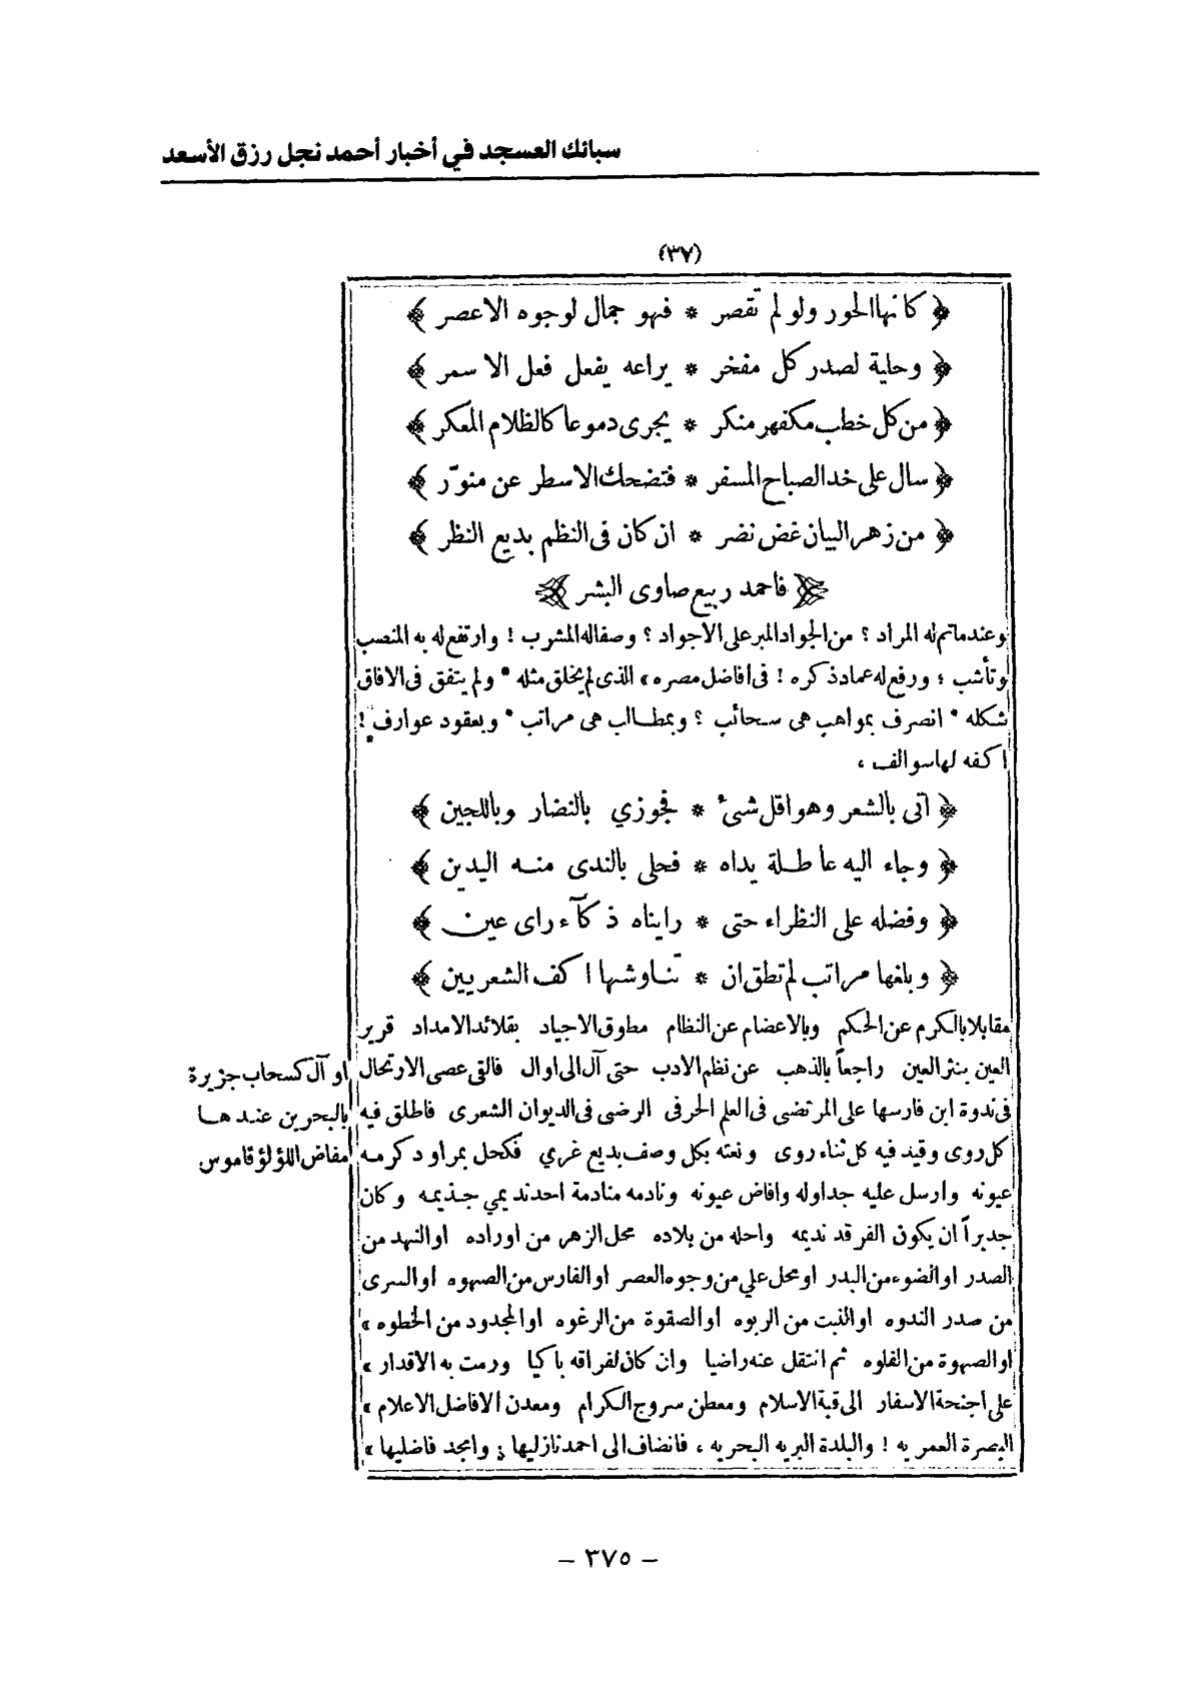 سبائك العسجد في أخبار أحمد نجل رزق الأسعد
(٣٧)
﴿ كانها الحور ولو لم تقصر * فهو جمال لوجوه الاعصر ﴾
﴿ وحلية لصدر كل مفخر * يراعه يفعل فعل الاسمر ﴾
﴿ من كل خطب مكفهر منكر * يجرى دموعا كالظلام المعكر ﴾
﴿ سال على خد الصباح المسفر * فتضحك الاسطر عن منوّر ﴾
﴿ من زهر البيان غض نضر * ان كان فى النظم بديع النظر ﴾
﴿ فاحمد ربيع صاوى البشر ﴾
وعند ماتم له المراد ؟ من الجواد المبر على الاجواد ؟ وصفاله المشرب ! وارتفع له به المنصب
وتأشب ؛ ورفع له عماد ذكره ! فى افاضل مصره » الذى لم يخلق مثله * ولم يتفق فى الافاق
شكله * انصرف بمواهب هى سحائب ؟ وبمطالب هى مراتب * وبعقود عوارف !
اكفه لها سوالف ،
﴿ اتى بالشعر وهو اقل شىء * فجوزي بالنضار وباللجين ﴾
﴿ وجاء اليه عاطلة يداه * فحلى بالندى منه اليدين ﴾
﴿ وفضله على النظراء حتى * رايناه ذكآء راى عين ﴾
﴿ وبلغها مراتب لم تطق ان * تناوشها اكف الشعريين ﴾
مقابلا بالكرم عن الحكم وبالاعضام عن النظام مطوق الاجياد بقلائد الامداد قرير
العين بنثر العين راجعاً بالذهب عن نظم الادب حتى آل الى اوال فالقى عصى الارتحال
او آل كسحاب جزيرة
فى ندوة ابن فارسها على المرتضى فى العلم الحرفى الرضى فى الديوان الشعرى فاطلق فيه
بالبحرين عندها
كل روى وقيد فيه كل ثناء روى ونعته بكل وصف بديع غري فكحل بمراود كرمه
مفاض اللؤلؤ قاموس
عيونه وارسل عليه جداوله وافاض عيونه ونادمه منادمة احد نديمي جذيمه وكان
جديراً ان يكون الفرقد نديمه واحله من بلاده محل الزهر من اوراده او النهد من
الصدر او الضوء من البدر او محل علي من وجوه العصر او الفارس من الصهوه او السرى
من صدر الندوه او النبت من الربوه او الصقوة من الرغوه او المجدود من الخطوه »
او الصهوة من الفلوه ثم انتقل عنه راضيا وان كان لفراقه باكيا ورمت به الاقدار »
على اجنحة الاسفار الى قبة الاسلام ومعطن سروج الكرام ومعدن الافاضل الاعلام »
البصرة العمريه ! والبلدة البريه البحريه ، فانضاف الى احمد نازليها ; وامجد فاضليها »
– ٣٧٥ –